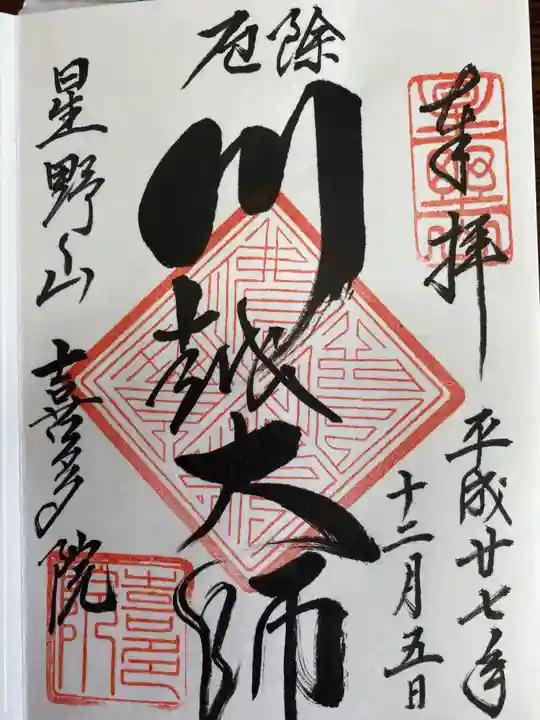 奉拝
平成廿七年
十二月五日
厄除
川越大師
星野山 喜多院